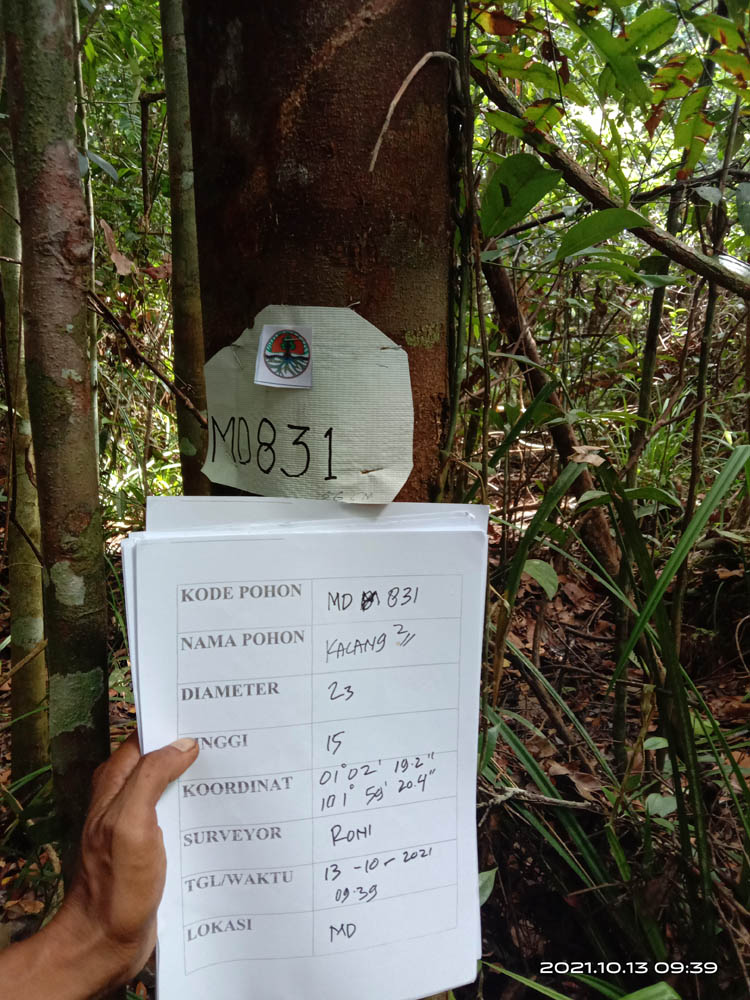 MD831
KODE POHON MD 831
NAMA POHON KALANG2
DIAMETER 23
INGGI 15
KOORDINAT 01° 02' 19.2"
101° 59' 20.4"
SURVEYOR RONI
TGL/WAKTU 13-10-2021
09.39
LOKASI MD
2021.10.13 09:39